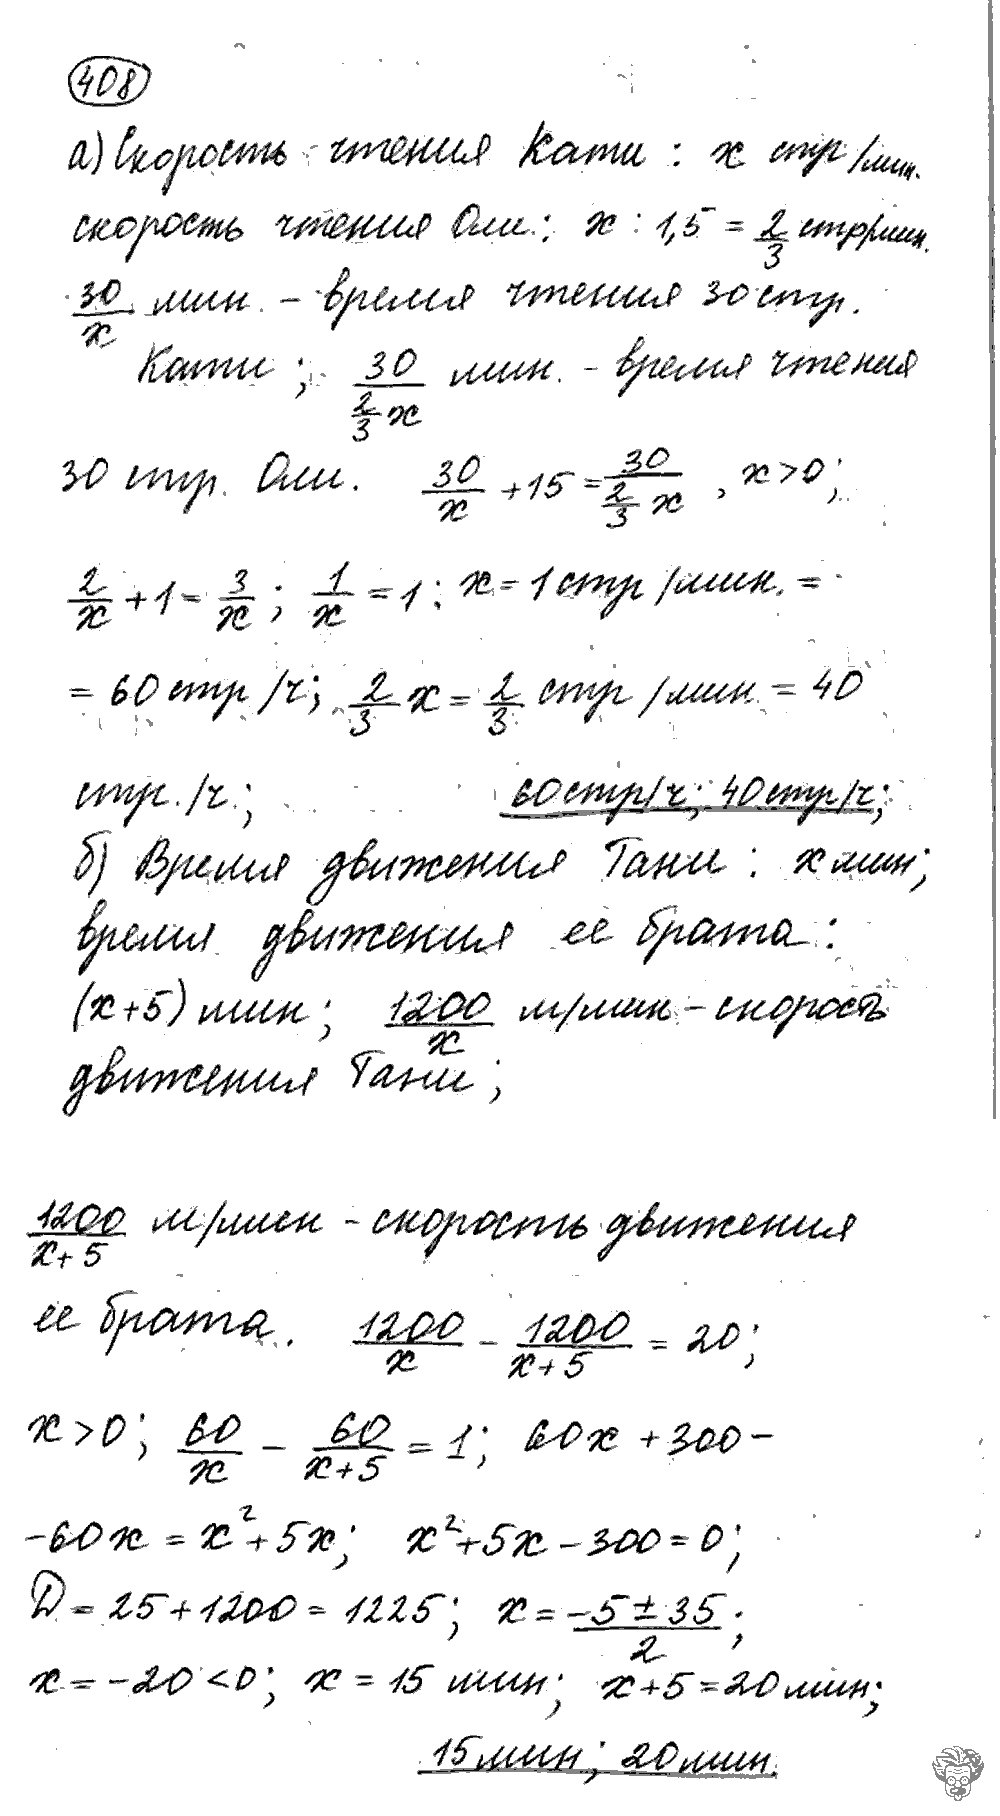 408
а) Скорость чтения Кати: x стр/мин.
скорость чтения Оли: x : 1,5 = 2/3 стр/мин.
30/x мин. – время чтения 30 стр.
Кати; 30/(2/3 x) мин. – время чтения
30 стр. Оли. 30/x + 15 = 30/(2/3 x), x > 0;
2/x + 1 = 3/x; 1/x = 1; x = 1 стр/мин. =
= 60 стр/ч; 2/3 x = 2/3 стр/мин = 40
стр./ч; 60 стр/ч; 40 стр/ч;
б) Время движения Тани: x мин;
время движения ее брата:
(x+5) мин; 1200/x м/мин – скорость
движения Тани;
1200/(x+5) м/мин – скорость движения
ее брата. 1200/x – 1200/(x+5) = 20;
x > 0; 60/x – 60/(x+5) = 1; 60x + 300 –
– 60x = x² + 5x; x² + 5x – 300 = 0;
D = 25 + 1200 = 1225; x = (–5 ± 35)/2;
x = –20 < 0; x = 15 мин; x + 5 = 20 мин;
15 мин; 20 мин.